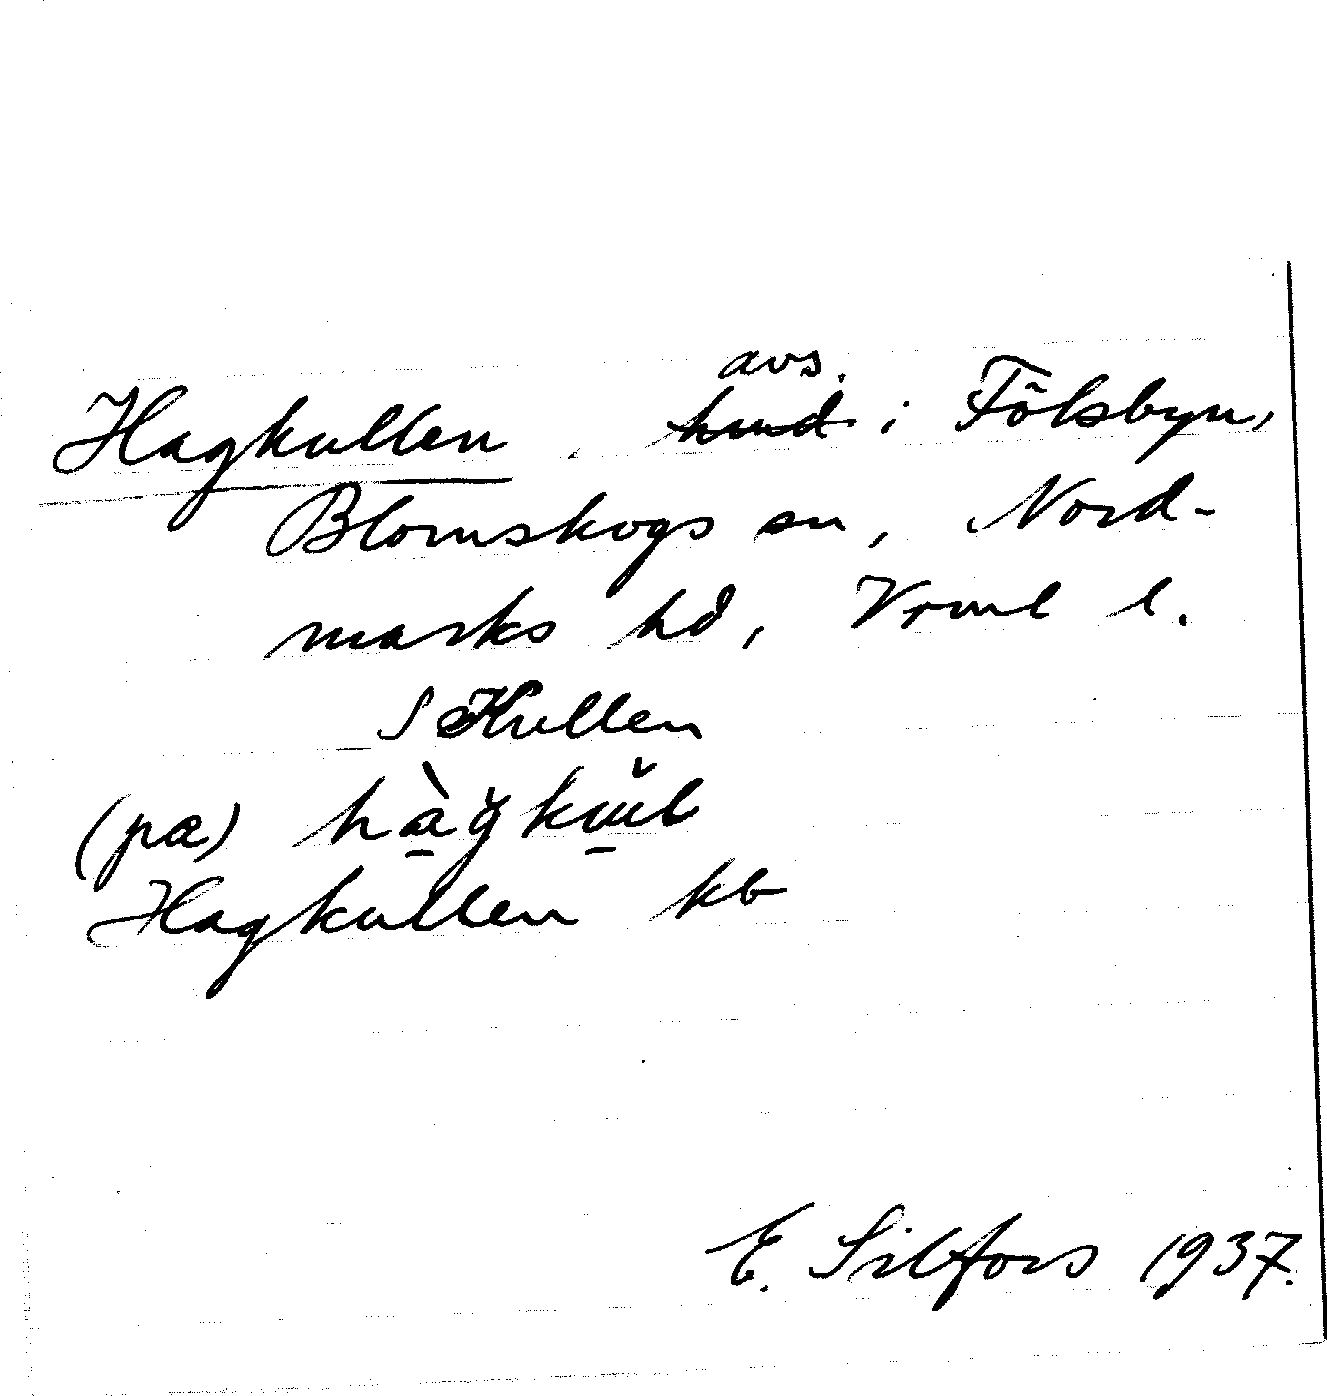 avs.
Hagkullen, hmd i Fölsbyn,
Blomskogs sn, Nord-
marks hd, Vrml l.
S Kullen
(pa)
Hagkullen kb
E. Silfors 1937.